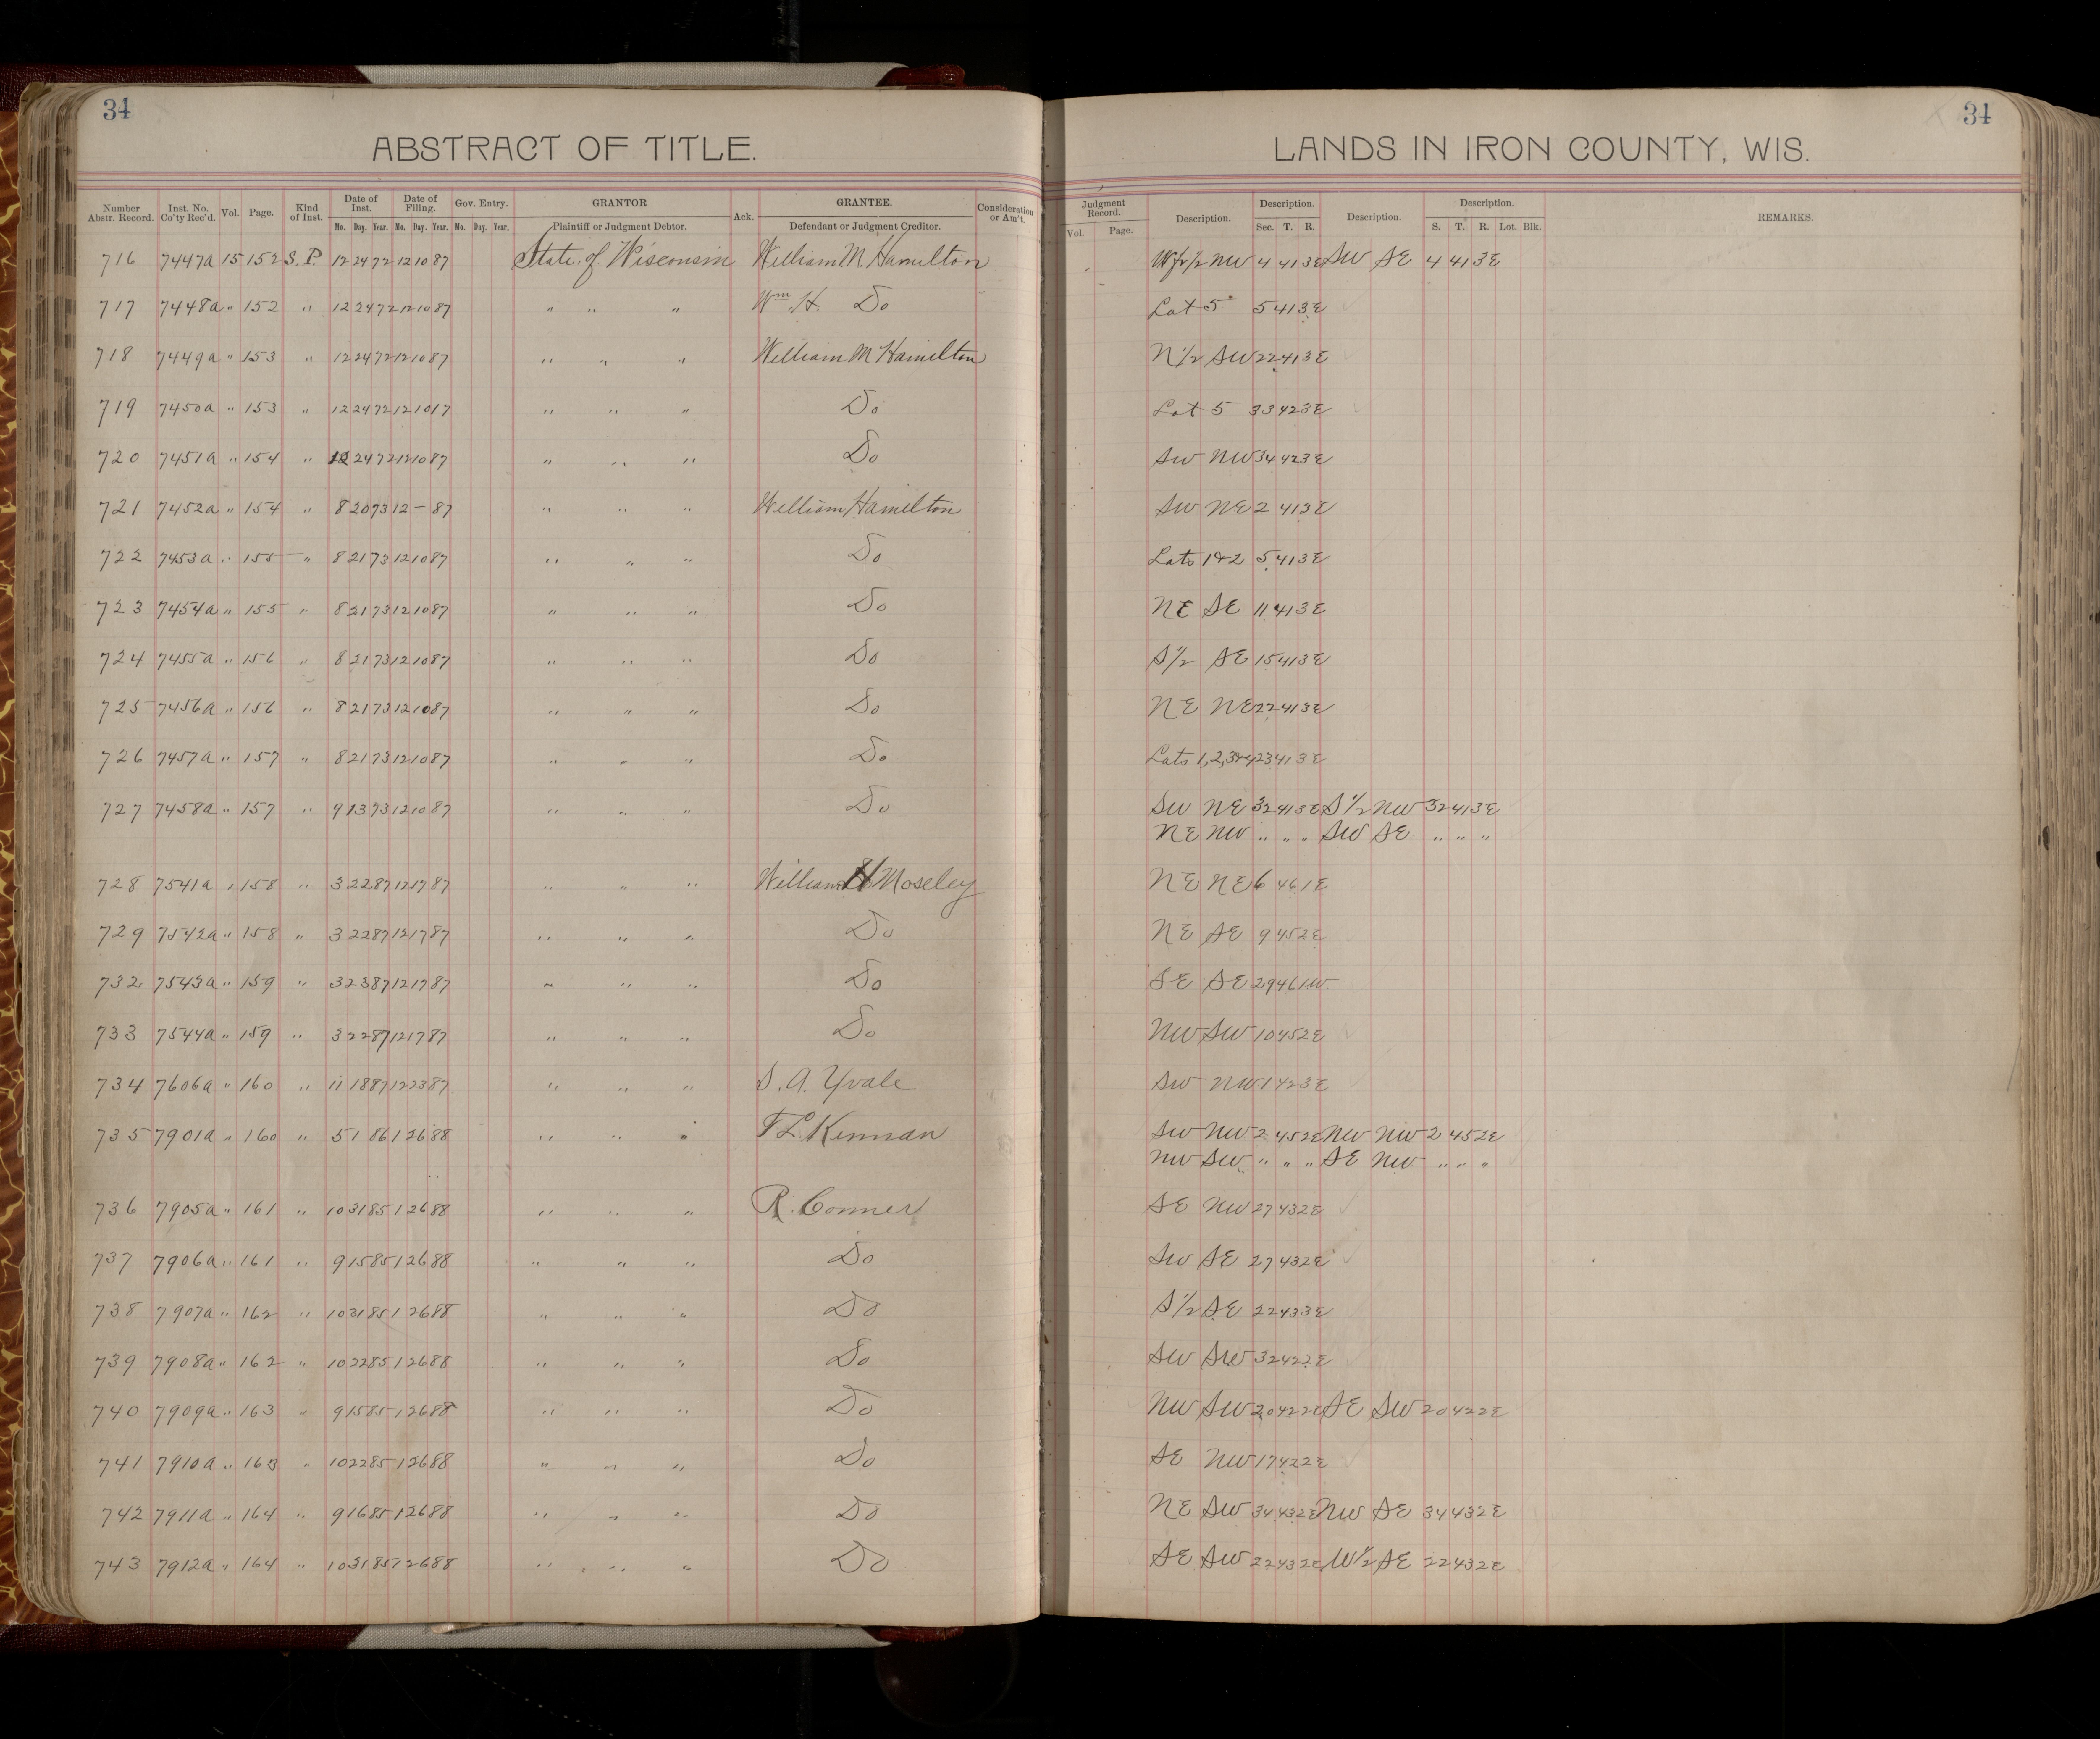 34
ABSTRACT OF TITLE.
Number Abstr. Record. Inst. No. Co'ty Rec'd. Vol. Page. Kind of Inst. Date of Inst. Date of Filing. Gov. Entry. GRANTOR Ack. GRANTEE. Consideration or Am't.
Mo. Day. Year. Mo. Day. Year. Mo. Day. Year. Plaintiff or Judgment Debtor. Defendant or Judgment Creditor.
716 7447a 15 152 S.P. 12 24 72 12 10 87 State of Wisconsin William M. Hamilton
717 7448a " 152 " 12 24 72 12 10 87 " " " Wm H. Do
718 7449a " 153 " 12 24 72 12 10 87 " " " William M Hamilton
719 7450a " 153 " 12 24 72 12 10 17 " " " Do
720 7451a " 154 " 12 24 72 12 10 87 " " " Do
721 7452a " 154 " 8 20 73 12 - 87 " " " William Hamilton
722 7453a " 155 " 8 21 73 12 10 87 " " " Do
723 7454a " 155 " 8 21 73 12 10 87 " " " Do
724 7455a " 156 " 8 21 73 12 10 87 " " " Do
725 7456a " 156 " 8 21 73 12 10 87 " " " Do
726 7457a " 157 " 8 21 73 12 10 87 " " " Do
727 7458a " 157 " 9 13 73 12 10 87 " " " Do
728 7541a " 158 " 3 22 87 12 17 87 " " " William H Moseley
729 7542a " 158 " 3 22 87 12 17 87 " " " Do
732 7543a " 159 " 3 23 87 12 17 87 " " " Do
733 7544a " 159 " 3 22 87 12 17 87 " " " Do
734 7606a " 160 " 11 18 87 12 23 87 " " " S. A. Yvale
735 7901a " 160 " 5 1 86 1 26 88 " " " T L. Kennan
736 7905a " 161 " 10 31 85 1 26 88 " " " R. Conner
737 7906a " 161 " 9 15 85 1 26 88 " " " Do
738 7907a " 162 " 10 31 85 1 26 88 " " " Do
739 7908a " 162 " 10 22 85 1 26 88 " " " Do
740 7909a " 163 " 9 15 85 1 26 88 " " " Do
741 7910a " 163 " 10 22 85 1 26 88 " " " Do
742 7911a " 164 " 9 16 85 1 26 88 " " " Do
743 7912a " 164 " 10 31 85 1 26 88 " " " Do
34
LANDS IN IRON COUNTY, WIS.
Judgment Record. Description. Description. Description. Description. REMARKS.
Vol. Page. Sec. T. R. S. T. R. Lot. Blk.
W fr 1/2 NW 4 41 3E SW SE 4 41 3E
Lot 5 5 41 3E
N 1/2 SW 22 41 3E
Lot 5 33 42 3E
SW NW 34 42 3E
SW NE 2 41 3E
Lots 1&2 5 41 3E
NE SE 11 41 3E
S 1/2 SE 15 41 3E
NE NE 22 41 3E
Lots 1,2,3&4 23 41 3E
SW NE 32 41 3E S 1/2 NW 32 41 3E
NE NW " " " SW SE " " "
NE NE 6 46 1E
NE SE 9 45 2E
SE SE 29 46 1W.
NW SW 10 45 2E
SW NW 1 42 3E
SW NW 2 45 2E NW NW 2 45 2E
NW SW " " " SE NW " " "
SE NW 27 43 2E
SW SE 27 43 2E
S 1/2 SE 22 43 3E
SW SW 32 42 2E
NW SW 20 42 2E SE SW 20 42 2E
SE NW 17 42 2E
NE SW 34 43 2E NW SE 34 43 2E
SE SW 22 43 2E W 1/2 SE 22 43 2E